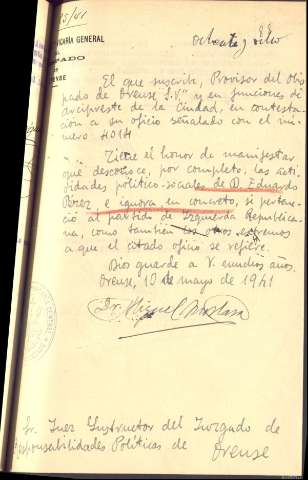 ochenta y ocho
VICARIA GENERAL
El que suscribe, Provisor del Obis
pado de Orense S.V. y en funciones de
arcipreste de la Ciudad, en contesta
ción a su oficio señalado con el nú
mero 4014
Tiene el honor de manifestar
que desconoce, por completo, las acti
vidades político-sociales de D. Eduardo
Pérez, e ignora en concreto, si perten
ció al partido de Izquierda Republica
na, como también los otros extremos
a que el citado oficio se refiere.
Dios guarde a V. muchos años.
Orense, 10 de mayo de 1941
Dr. Miguel
Sr. Juez Instructor del Juzgado de
Responsabilidades Políticas de Orense